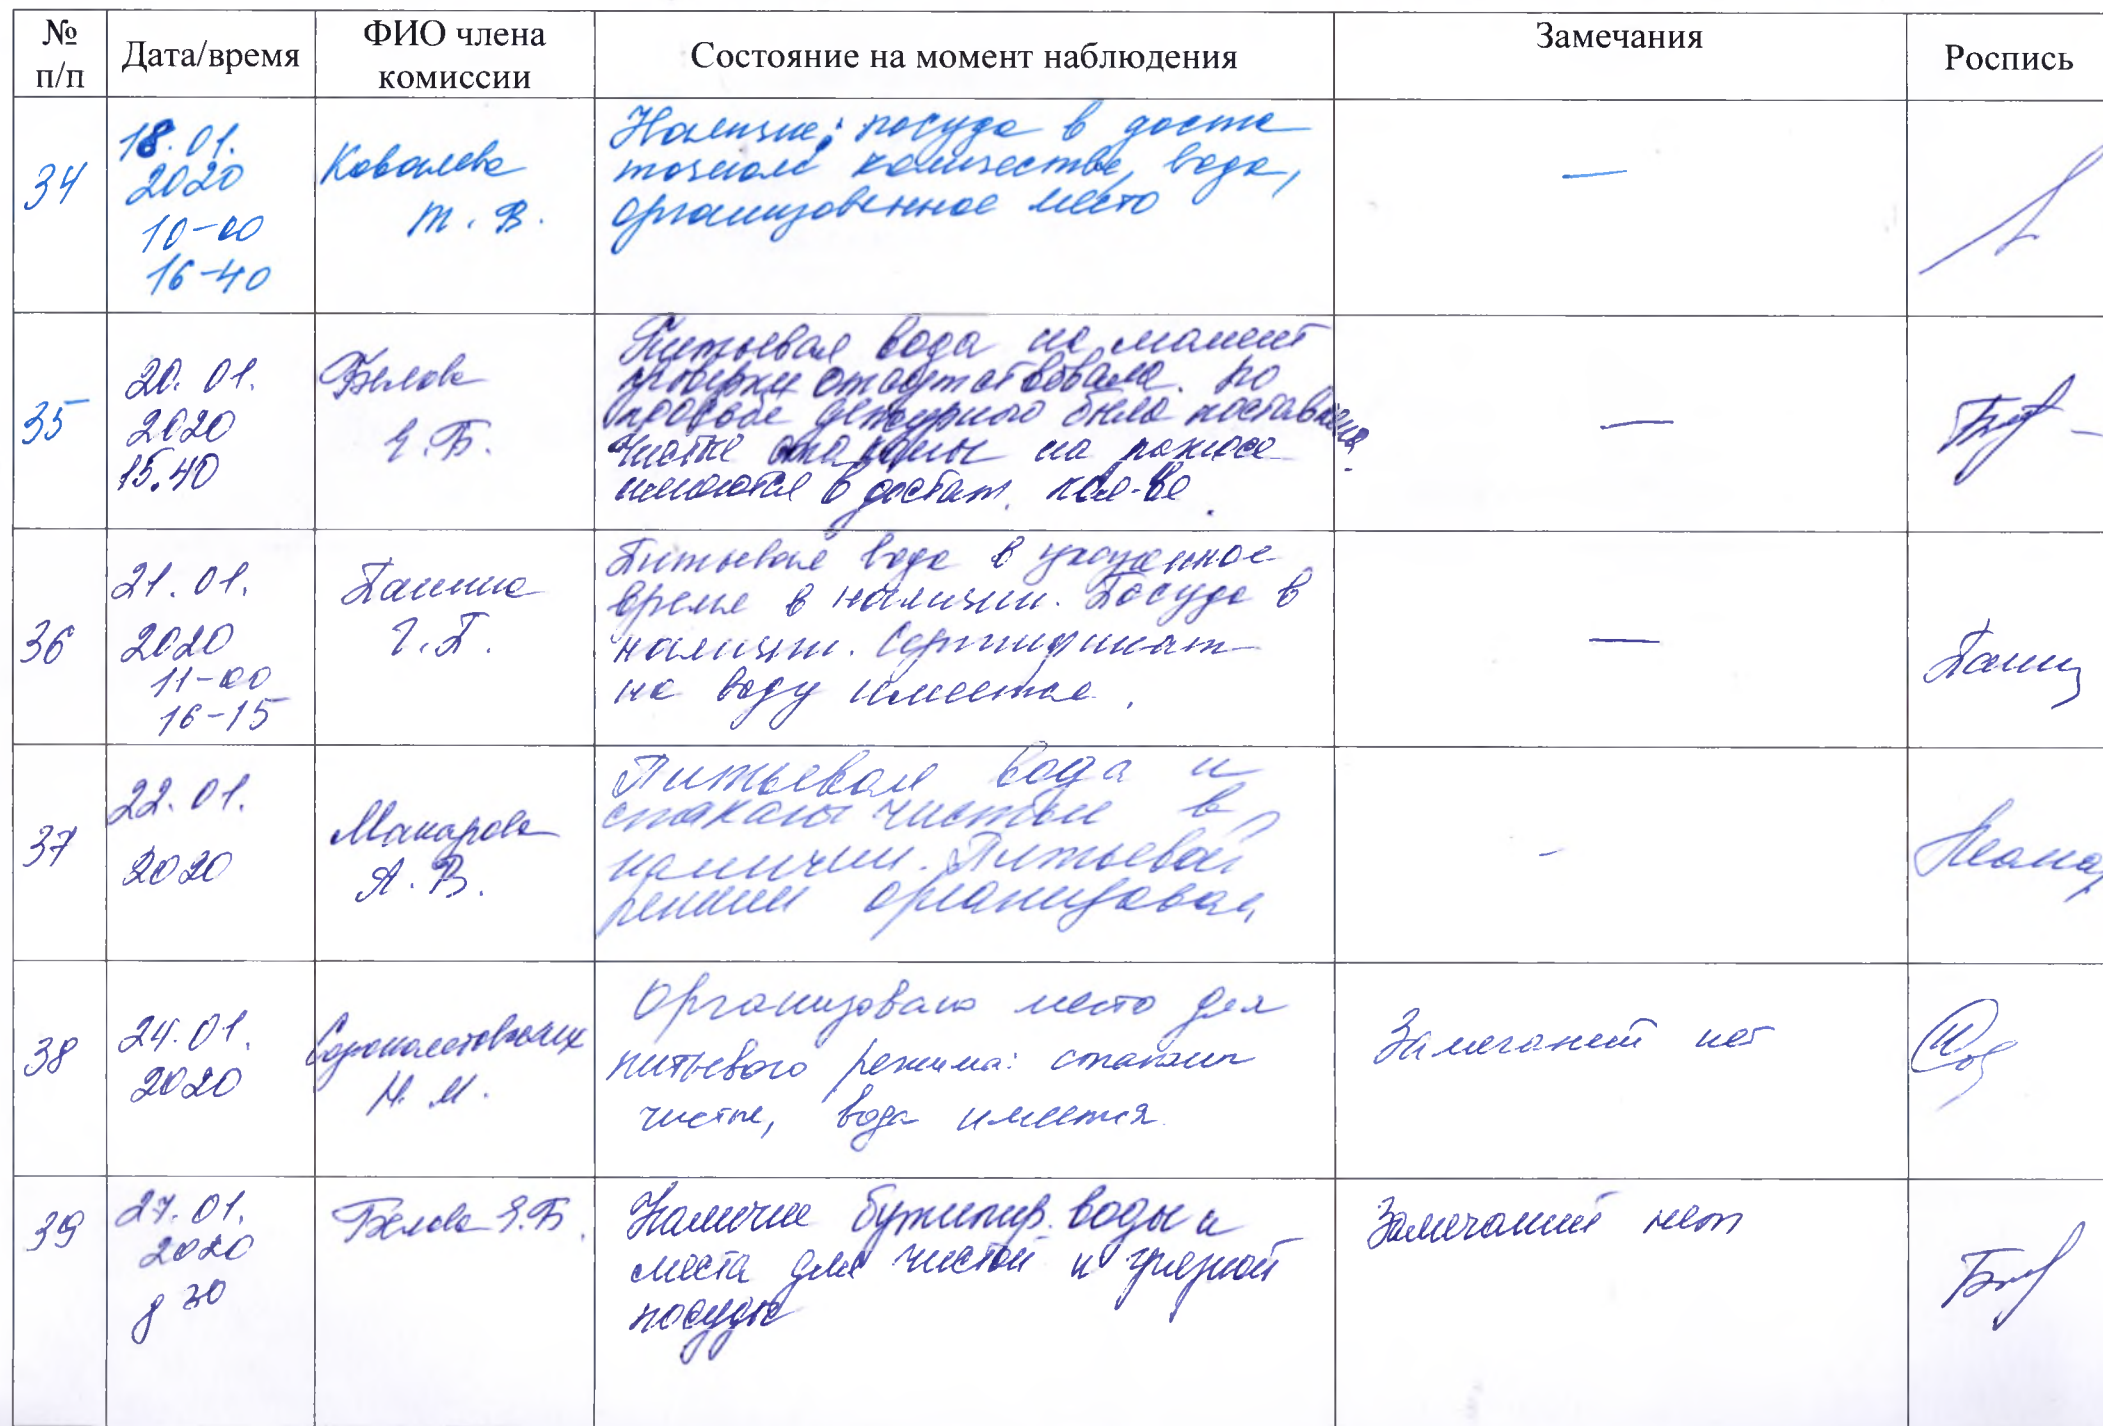 № п/п
Дата/время
ФИО члена комиссии
Состояние на момент наблюдения
Замечания
Роспись
34
18.01.
2020
10-00
16-40
Ковалева
Т. В.
Наличие: посуда в доста
точном количестве, вода,
организованное место
—
35
20. 01.
2020
15.40
Белова
Е.Б.
Питьевая вода на момент
проверки отсутствовала. По
просьбе дежурного была поставлена.
Чистые стаканы на подносе
имеются в достат. кол-ве.
—
36
21.01.
2020
11-00
16-15
Панина
Г.П.
Питьевая вода в указанное
время в наличии. Посуда в
наличии. Сертификат
на воду имеется.
—
37
22.01.
2020
Макарова
А.В.
Питьевая вода и
стаканы чистые в
наличии. Питьевой
режим организован
-
38
24.01.
2020
Н. М.
Организовано место для
питьевого режима: стаканы
чистые, вода имеется.
Замечаний нет
39
27.01.
2020
Белова Е.Б.
Наличие бутилир. воды и
места для чистой и грязной
посуды
Замечаний нет